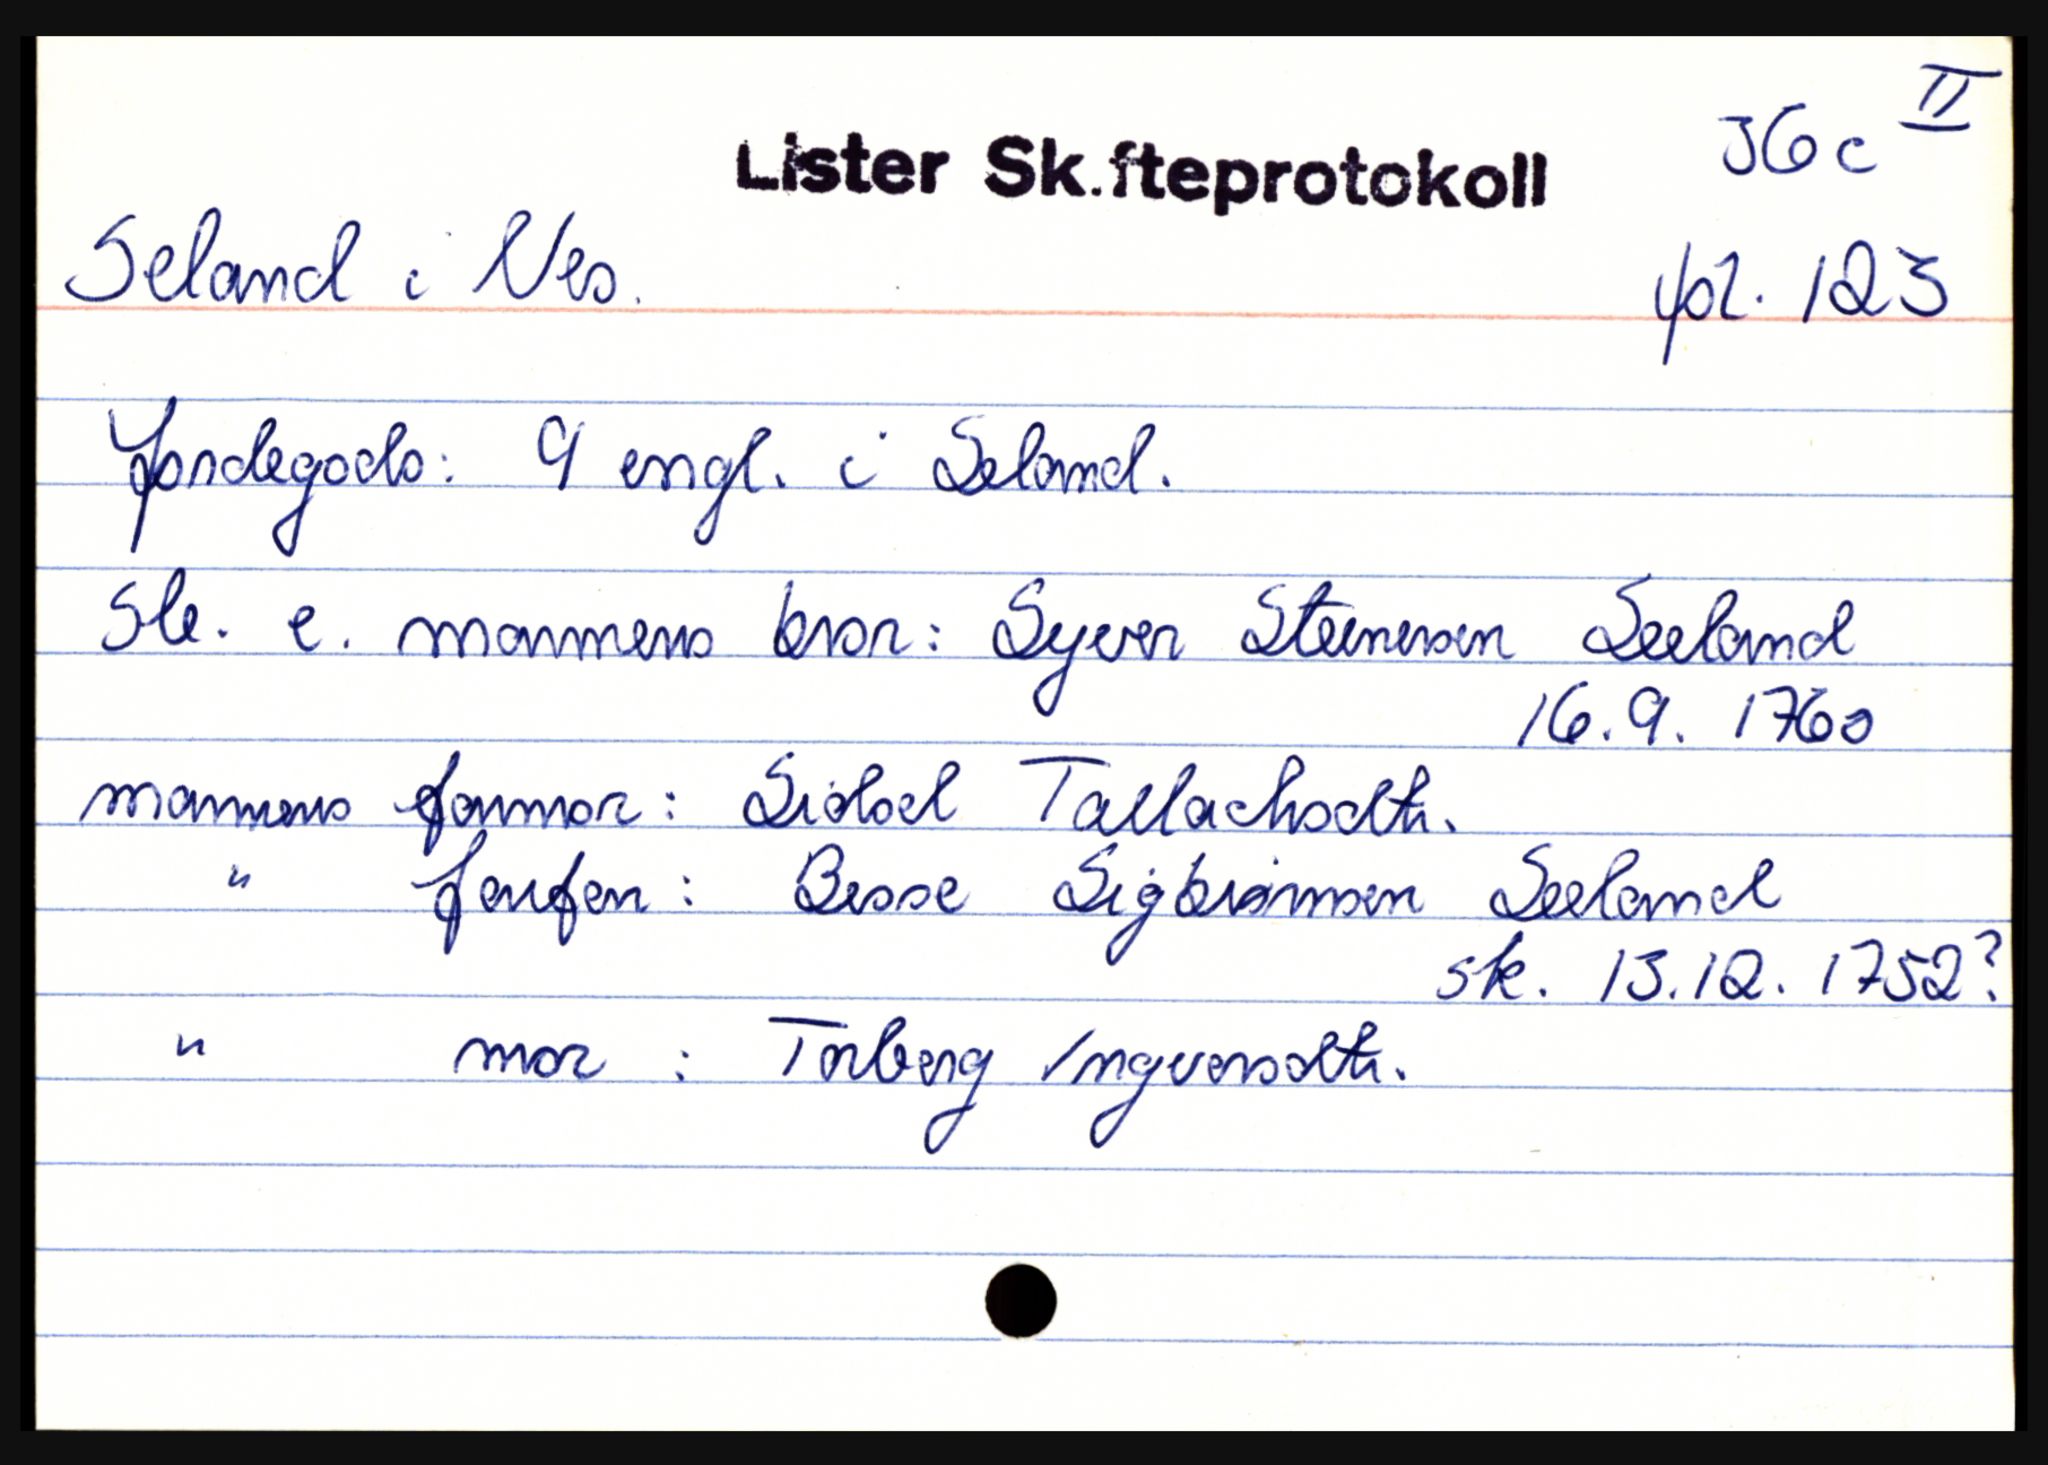 II
Lister Sk.fteprotokoll 36c
Seland i Nes. fol. 123
Jordegods: 9 engl. i Seland.
Ste. e. mannens bror: Syver Steinersen Seeland
16.9. 1760
mannens farmor: Siobod Tallachsdtr.
" farfar: Besse Sigbiørnsen Seeland
sk. 13.12. 1752?
" mor : Torberg Ingversdtr.